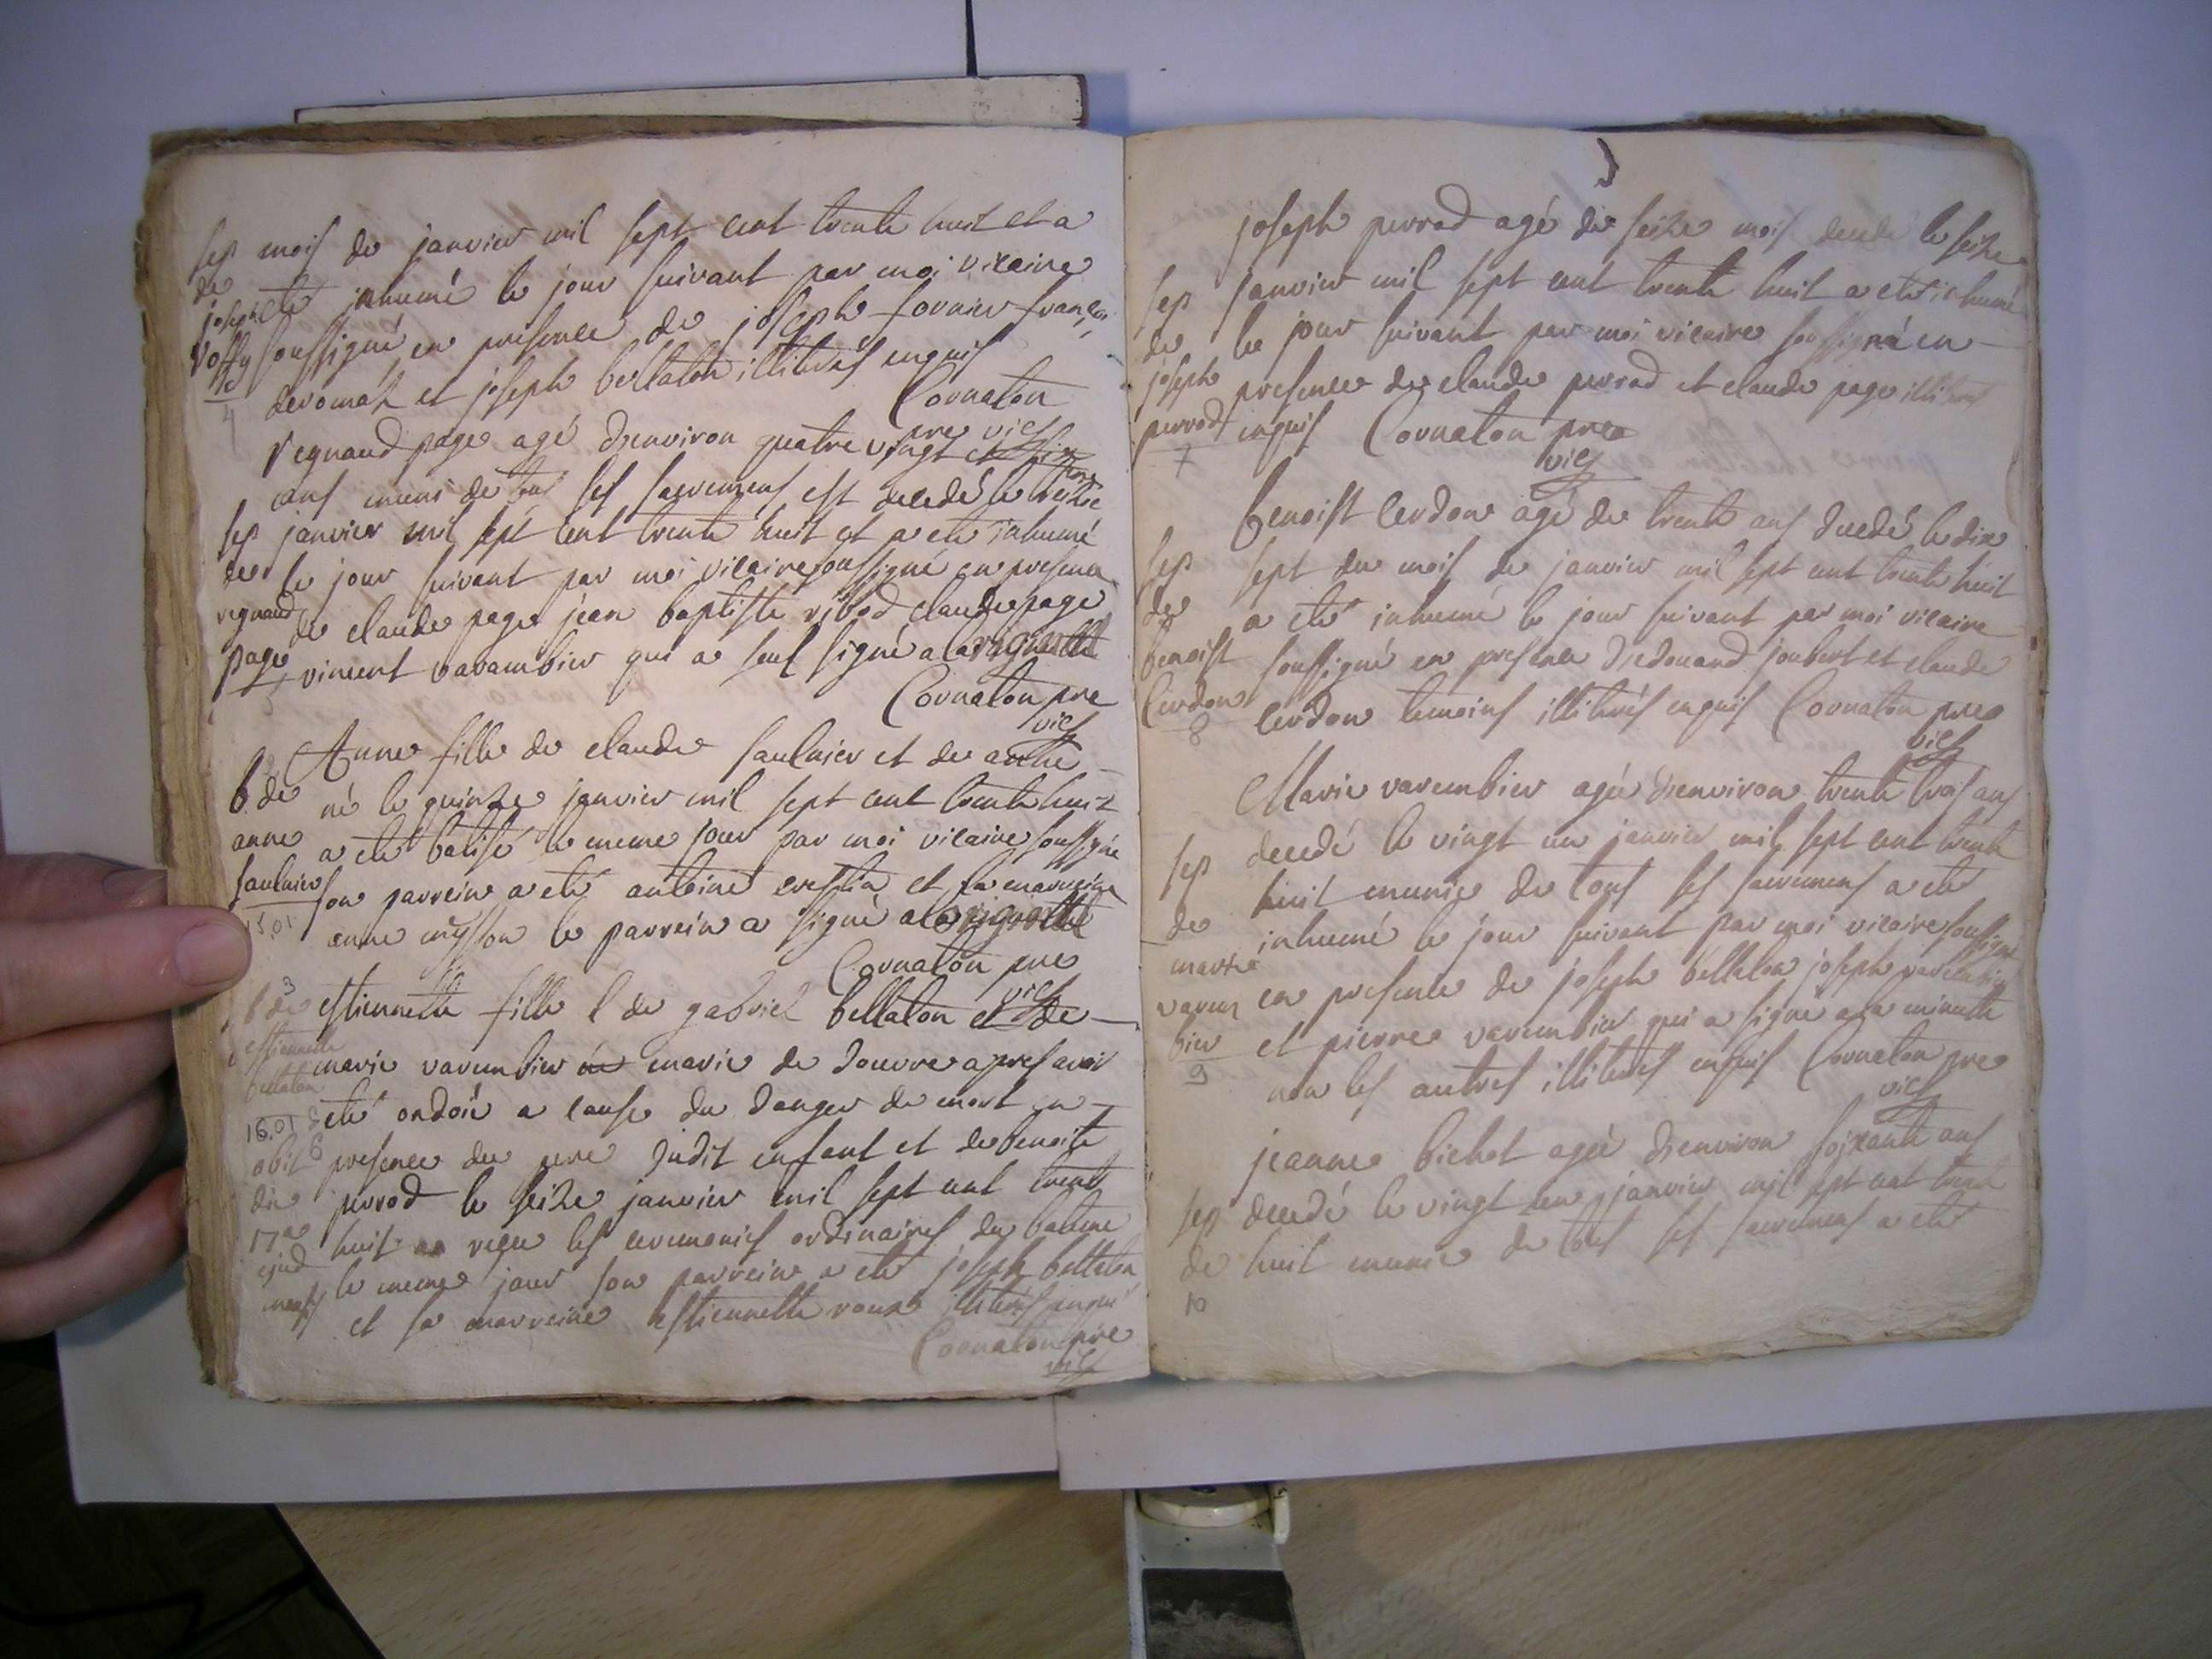 mois de janvier mil sept cent trente huit et a
eté inhumé le jour suivant par moi vicaire
soussigné en presence de joseph fornier françois
deromaz et joseph bellaton illiterés enquis
Cornaton
pre vic
sep
de
joseph
4
regnaud page agé denviron quatre vingt
ans muni de tous ses sacremens est decedé le
janvier mil sept cent trente huit et a eté inhumé
le jour suivant par moi vicaire soussigné en presence
de claude page jean baptiste ribod claude page
vincent varambier qui a seul signé a la
Cornaton pre
vic
sep
de
regnaud
page
5
Anne fille de claude saulnier et de anne
né le quinze janvier mil sept cent trente huit
a eté batisé le meme jour par moi vicaire soussigné
son parrein a eté antoine et sa marreine
anne le parrein a signé a
Cornaton pre
vic
b. de
anne
saulnier
15.01
estiennette fille l de gabriel bellaton et de
marie varembier marie de douvre apres avoir
eté ondoié a cause du danger de mort en
presence du pere dudit enfant et de benoite
perrod le seize janvier mil sept cent trente
huit a reçu les ceremonies ordinaires du bateme
le meme jour son parrein a eté joseph bellaton
et sa marreine estiennette roux illiterés enquis
Cornaton pre
vic
b de
estiennette
bellaton
16.01
obiit 6
die
17a
ejusd
mensis
3
joseph perrod agé de seize mois decedé le seize
janvier mil sept cent trente huit a eté inhumé
le jour suivant par moi vicaire soussigné en
presence de claude perrod et claude page illiterés
enquis Cornaton pre
vic
sep
de
joseph
perrod
7
benoist Cerdon agé de trente ans decedé le dix
sept du mois de janvier mil sept cent trente huit
a eté inhumé le jour suivant par moi vicaire
soussigné en presence dedouard joubert et claude
cerdon temoins illiterés enquis Cornaton pre
vic
sep
de
benoist
Cerdon
8
Marie varembier agée denviron trente trois ans
decedé le vingt un janvier mil sept cent trente
huit munie de tous ses sacremens a eté
inhumé le jour suivant par moi vicaire soussigné
en presence de joseph bellaton joseph varembier
et pierre varembier qui a signé a la minutte
non les autres illiterés enquis Cornaton pre
vic
sep
de
marie
varem
bier
9
jeanne bichet agée denviron soixante ans
decedé le vingt un janvier mil sept cent trente
huit munie de tous ses sacremens a eté
sep
de
10